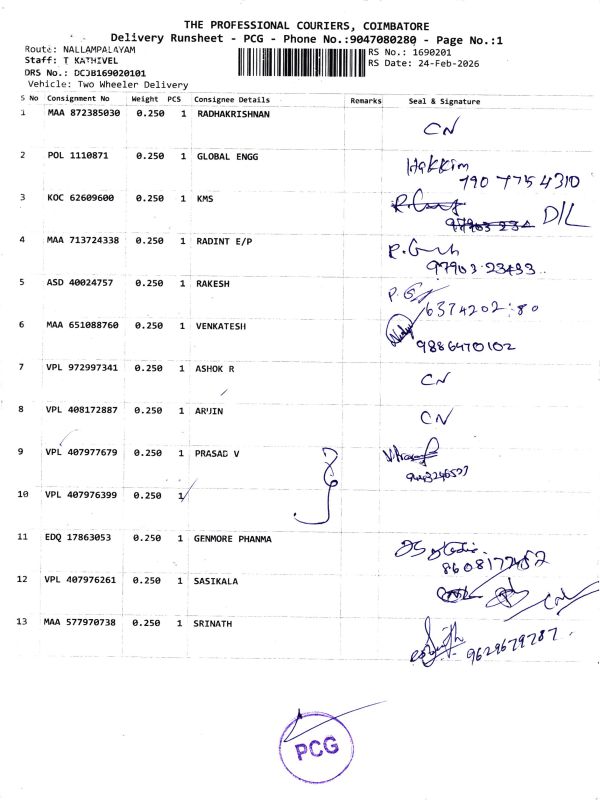 THE PROFESSIONAL COURIERS, COIMBATORE
Delivery Runsheet - PCG - Phone No.:9047080280 - Page No.:1
Route: NALLAMPALAYAM
RS No.: 1690201
Staff: T KATHIVEL
RS Date: 24-Feb-2026
DRS No.: DCJB169020101
Vehicle: Two Wheeler Delivery
S No Consignment No Weight PCS Consignee Details Remarks Seal & Signature
1 MAA 872385030 0.250 1 RADHAKRISHNAN CN
2 POL 1110871 0.250 1 GLOBAL ENGG Hakkim
790 775 4310
3 KOC 62609600 0.250 1 KMS D/L
4 MAA 713724338 0.250 1 RADINT E/P
97903 23493
5 ASD 40024757 0.250 1 RAKESH
6 MAA 651088760 0.250 1 VENKATESH
9886470102
7 VPL 972997341 0.250 1 ASHOK R CN
8 VPL 408172887 0.250 1 ARJIN CN
9 VPL 407977679 0.250 1 PRASAD V
10 VPL 407976399 0.250 1
11 EDQ 17863053 0.250 1 GENMORE PHANMA
12 VPL 407976261 0.250 1 SASIKALA CN
13 MAA 577970738 0.250 1 SRINATH
9629679787
PCG